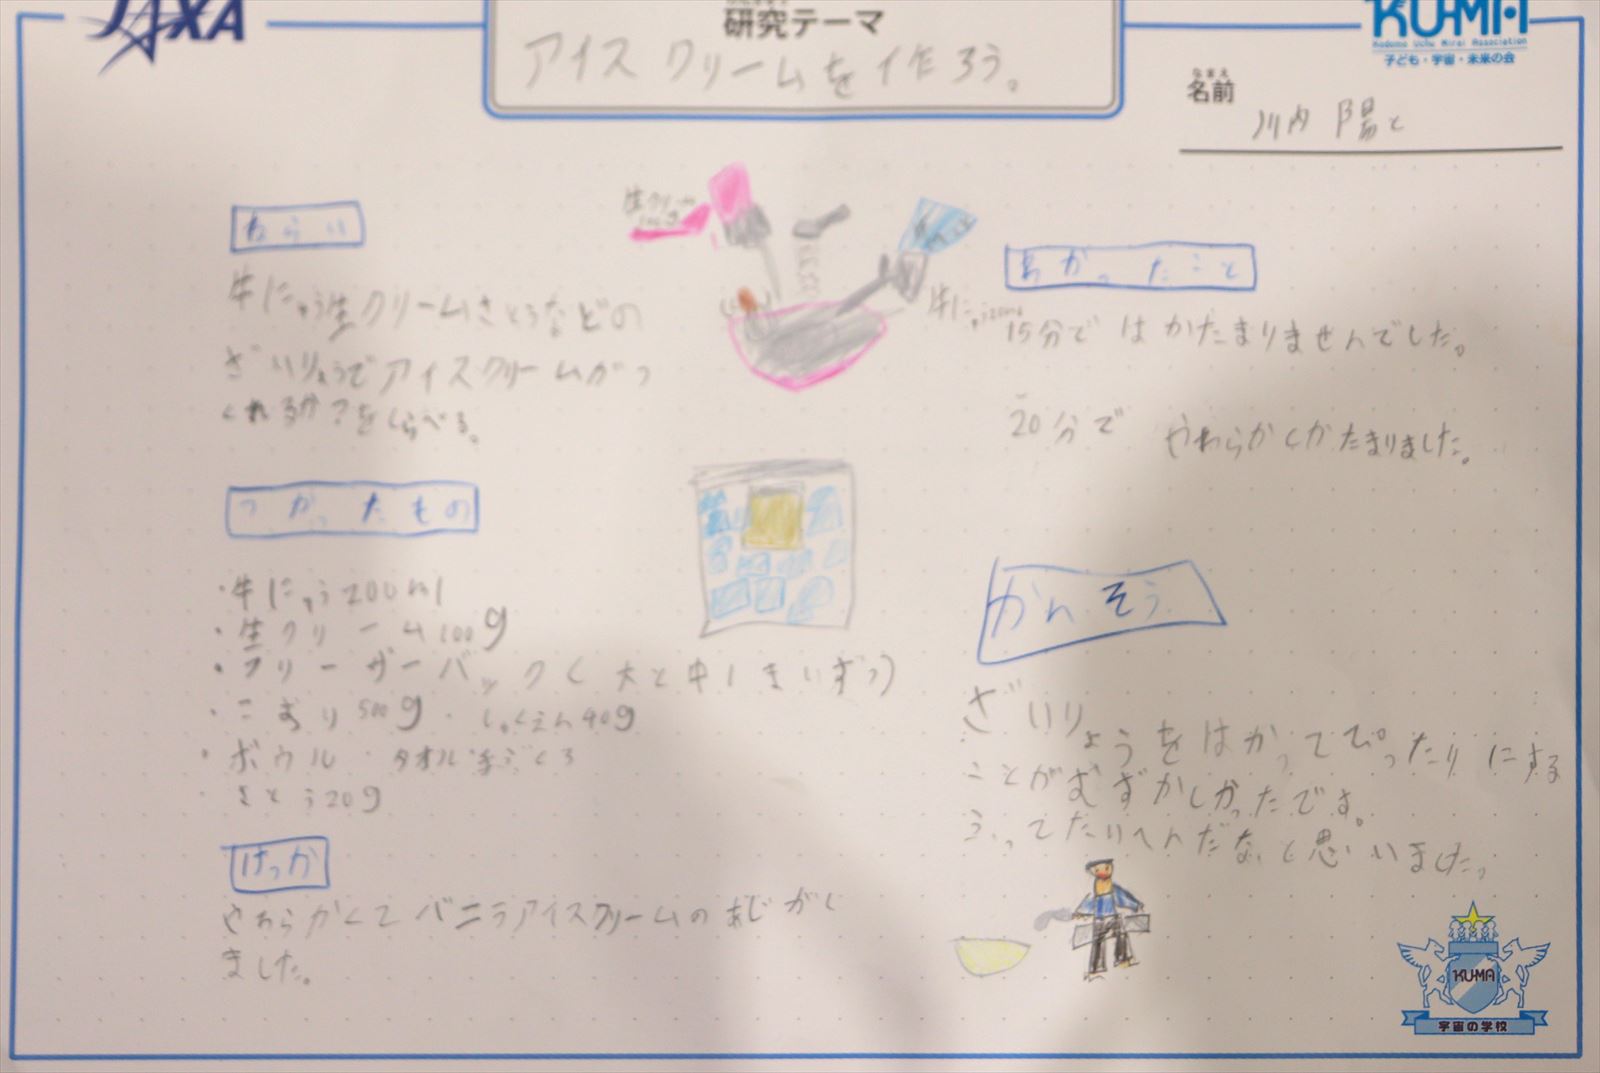 JAXA
研究テーマ
アイスクリームを作ろう。
KU-MA
Kodomo Uchu Mirai Association
子ども・宇宙・未来の会
なまえ
名前
川内 陽と
ねらい
牛にゅう生クリームさとうなどの
ざいりょうでアイスクリームがつ
くれるか?をしらべる。
つかったもの
・牛にゅう200ml
・生クリーム100g
・フリーザーバック(大と中1まいずつ)
・こおり500g・しょくえん40g
・ボウル・タオル・手ぶくろ
・さとう20g
けっか
やわらかくてバニラアイスクリームのあじがし
ました。
生クリーム
100g
牛にゅう200ml
わかったこと
15分ではかたまりませんでした。
20分でやわらかくかたまりました。
かんそう
ざいりょうをはかってぴったりにする
ことがむずかしかったです。
ふってたいへんだなと思いました。
KU-MA
宇宙の学校